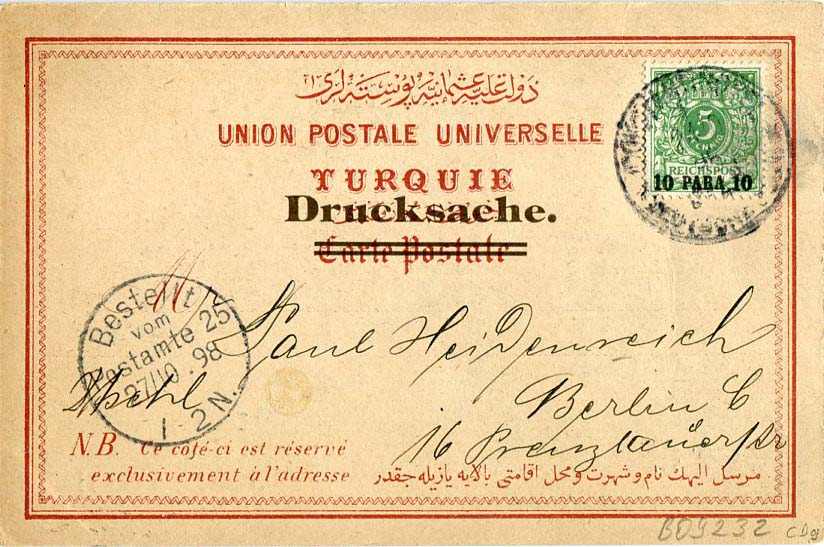 دولت علیه عثمانیه پوسته لری
UNION POSTALE UNIVERSELLE
TURQUIE
Drucksache.
Carte Postale
5
REICHSPOST
10 PARA 10
Bestellt
vom
Postamte 25
27/10.98
1-2N.
Paul Heidenreich
Berlin C
16 Prenzlauerstr
N.B. Ce coté-ci est réservé
exclusivement à l'adresse
مرسل الیهك نام و شهرت و محل اقامتی بالایه یازیله جقدر
B09232